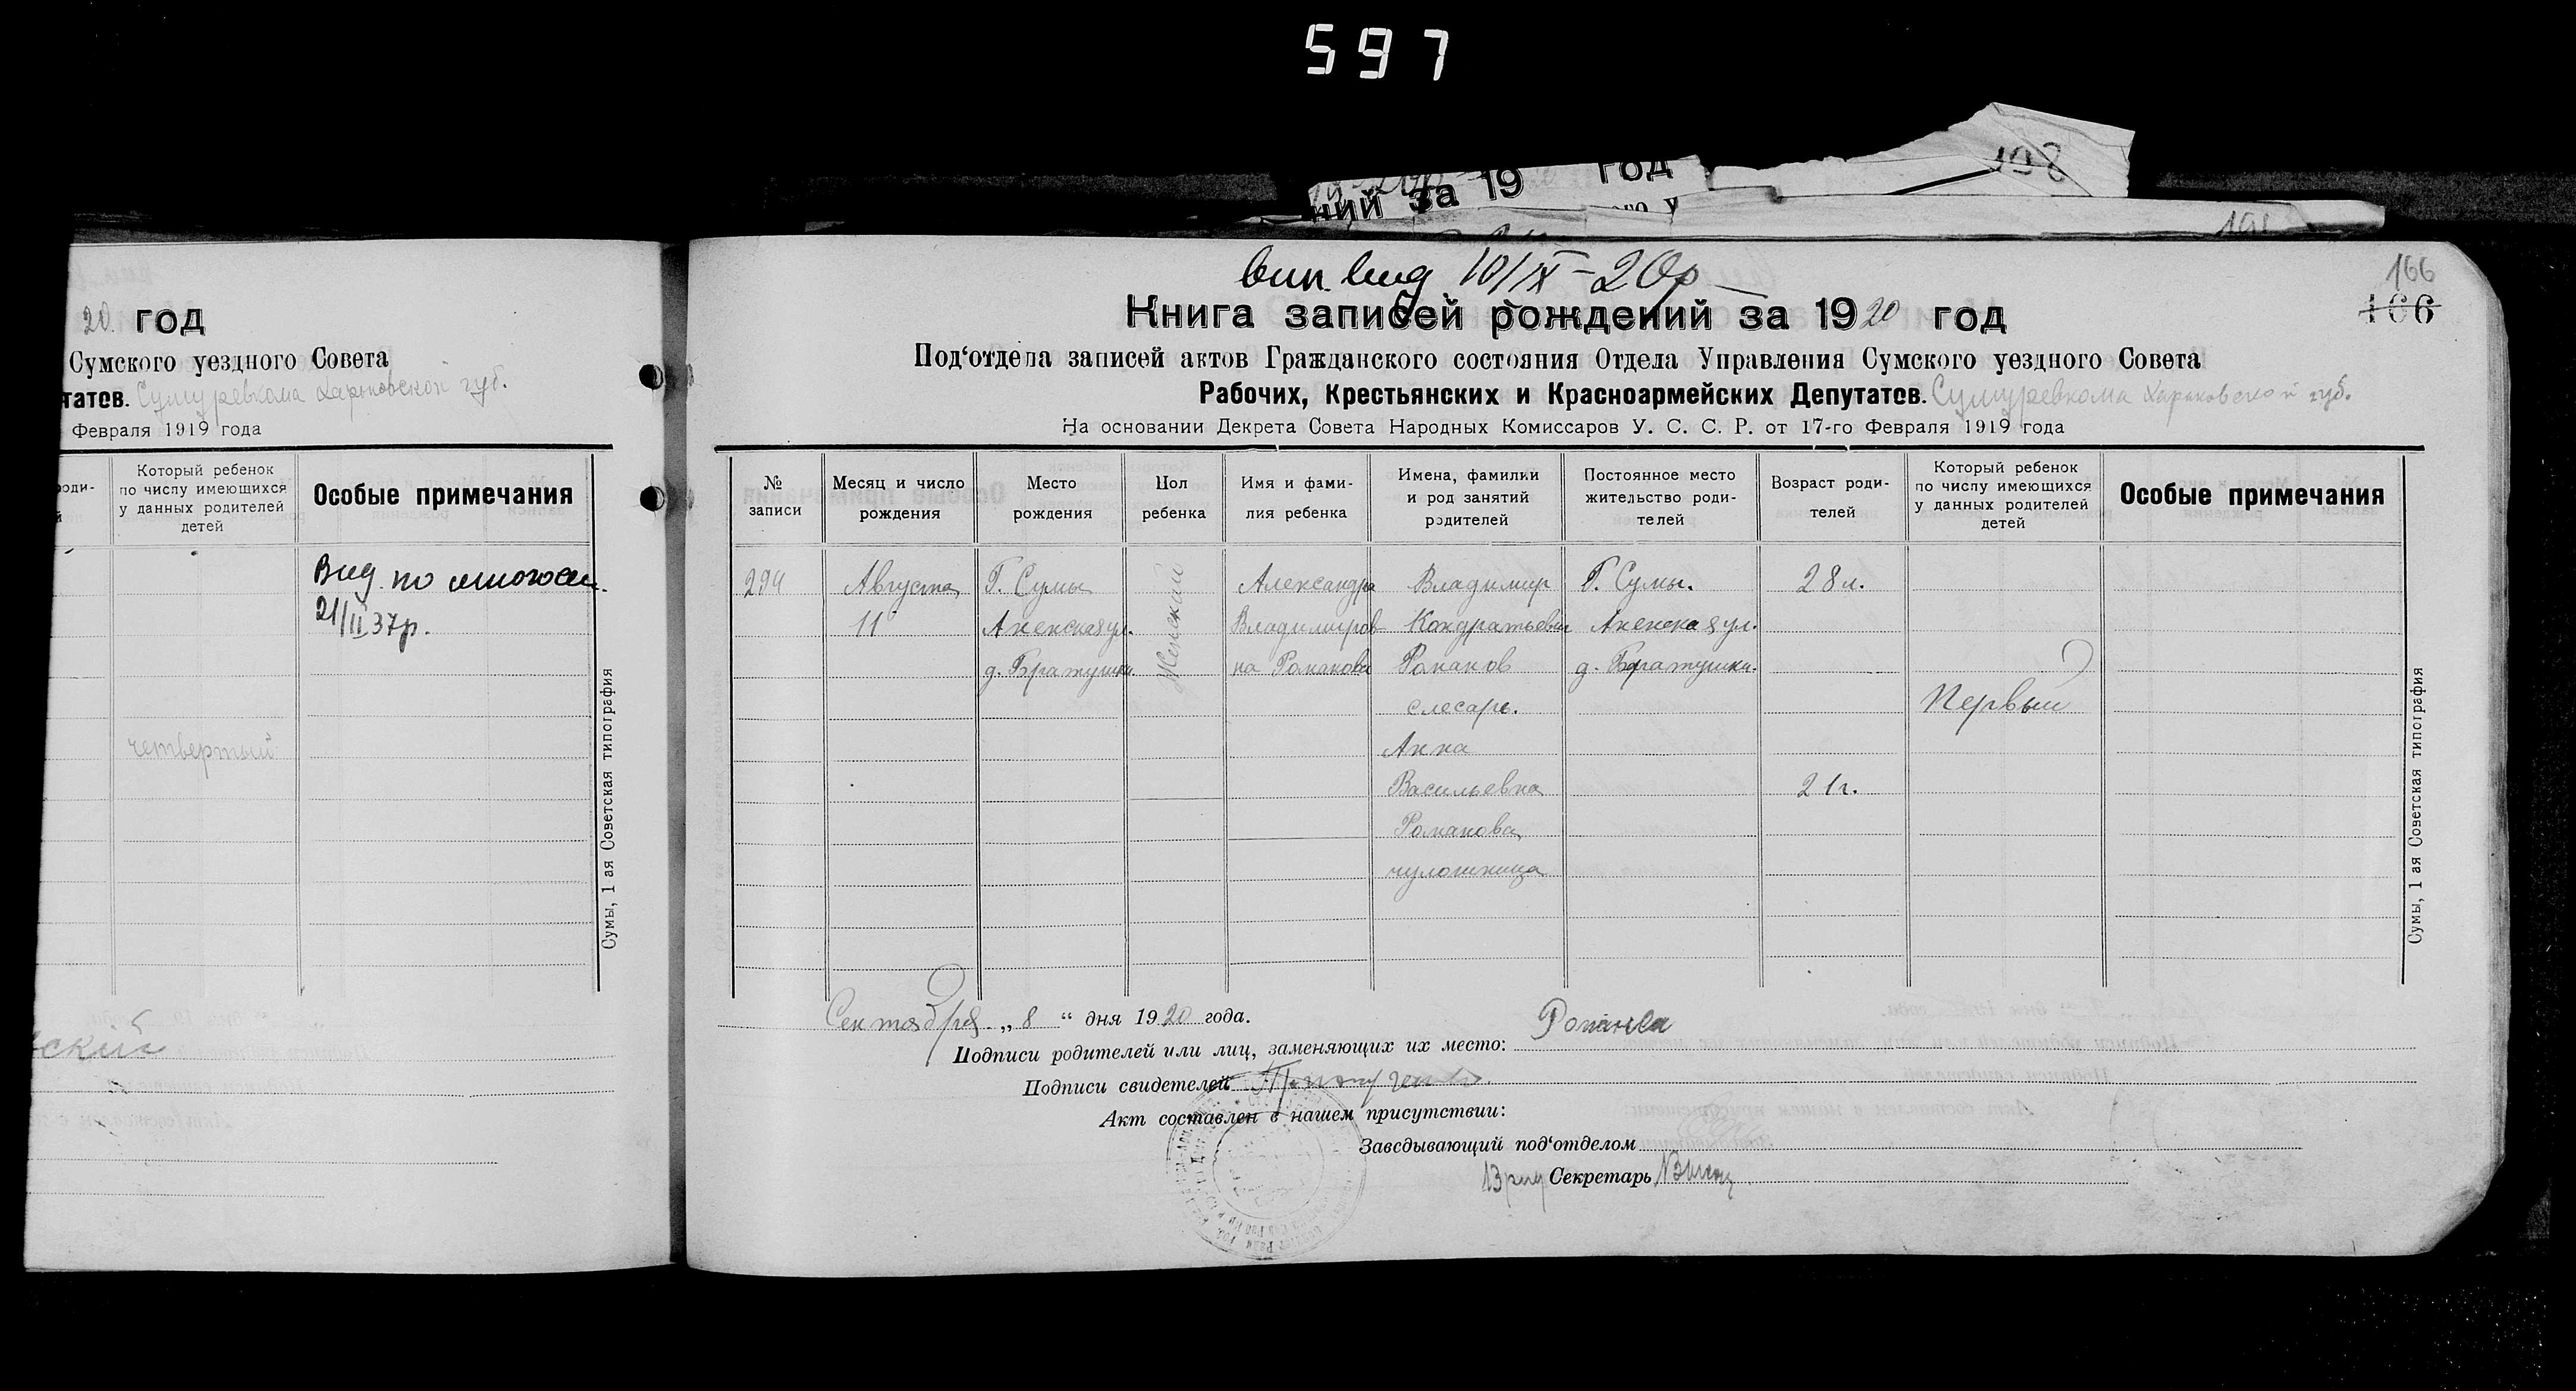 597
год
ний за 19
198
20 год
Сумского уездного Совета
татов. Сумуревкома Харьковской губ.
Февраля 1919 года
роди-
й
Который ребенок
по числу имеющихся
у данных родителей
детей
Особые примечания
Вид. по
21/II 37р.
четвертый
ский
Сумы, 1 ая Советская типография
вид 10/IX-20р
166
166
Книга записей рождений за 1920 год
Под‘отдела записей актов Гражданского состояния Отдела Управления Сумского уездного Совета
Рабочих, Крестьянских и Красноармейских Депутатов. Сумуревкома Харьковской губ.
На основании Декрета Совета Народных Комиссаров У. С. С. Р. от 17-го Февраля 1919 года
№
записи
Месяц и число
рождения
Место
рождения
Пол
ребенка
Имя и фами-
лия ребенка
Имена, фамилии
и род занятий
родителей
Постоянное место
жительство роди-
телей
Возраст роди-
телей
Который ребенок
по числу имеющихся
у данных родителей
детей
Особые примечания
294
Августа
11
Г. Сумы
Ахенская ул.
д. Братушки.
Женский
Александра
Владимиров
на Романова
Владимир
Кондратьевич
Романов
слесарь.
Анна
Васильевна
Романова
чулошница
Г. Сумы.
Ахенская ул.
д. Братушки.
28 л.
21 г.
Первый
Сумы, 1 ая Советская типография
Сентября „ 8 “ дня 1920 года.
Подписи родителей или лиц, заменяющих их место: Романова
Подписи свидетелей
Акт составлен в нашем присутствии:
Заведывающий под‘отделом
Секретарь